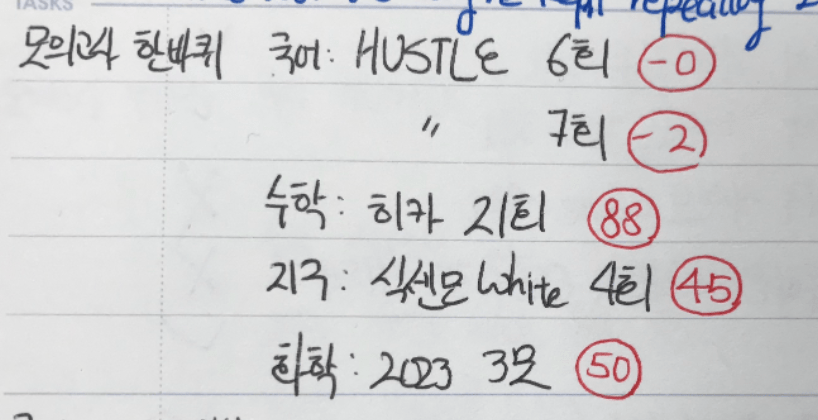 TASKS
모의고사 한바퀴 국어: HUSTLE 6회 -0
〃 7회 -2
수학: 히카 21회 88
지구: 식센모 White 4회 45
화학: 2023 3모 50